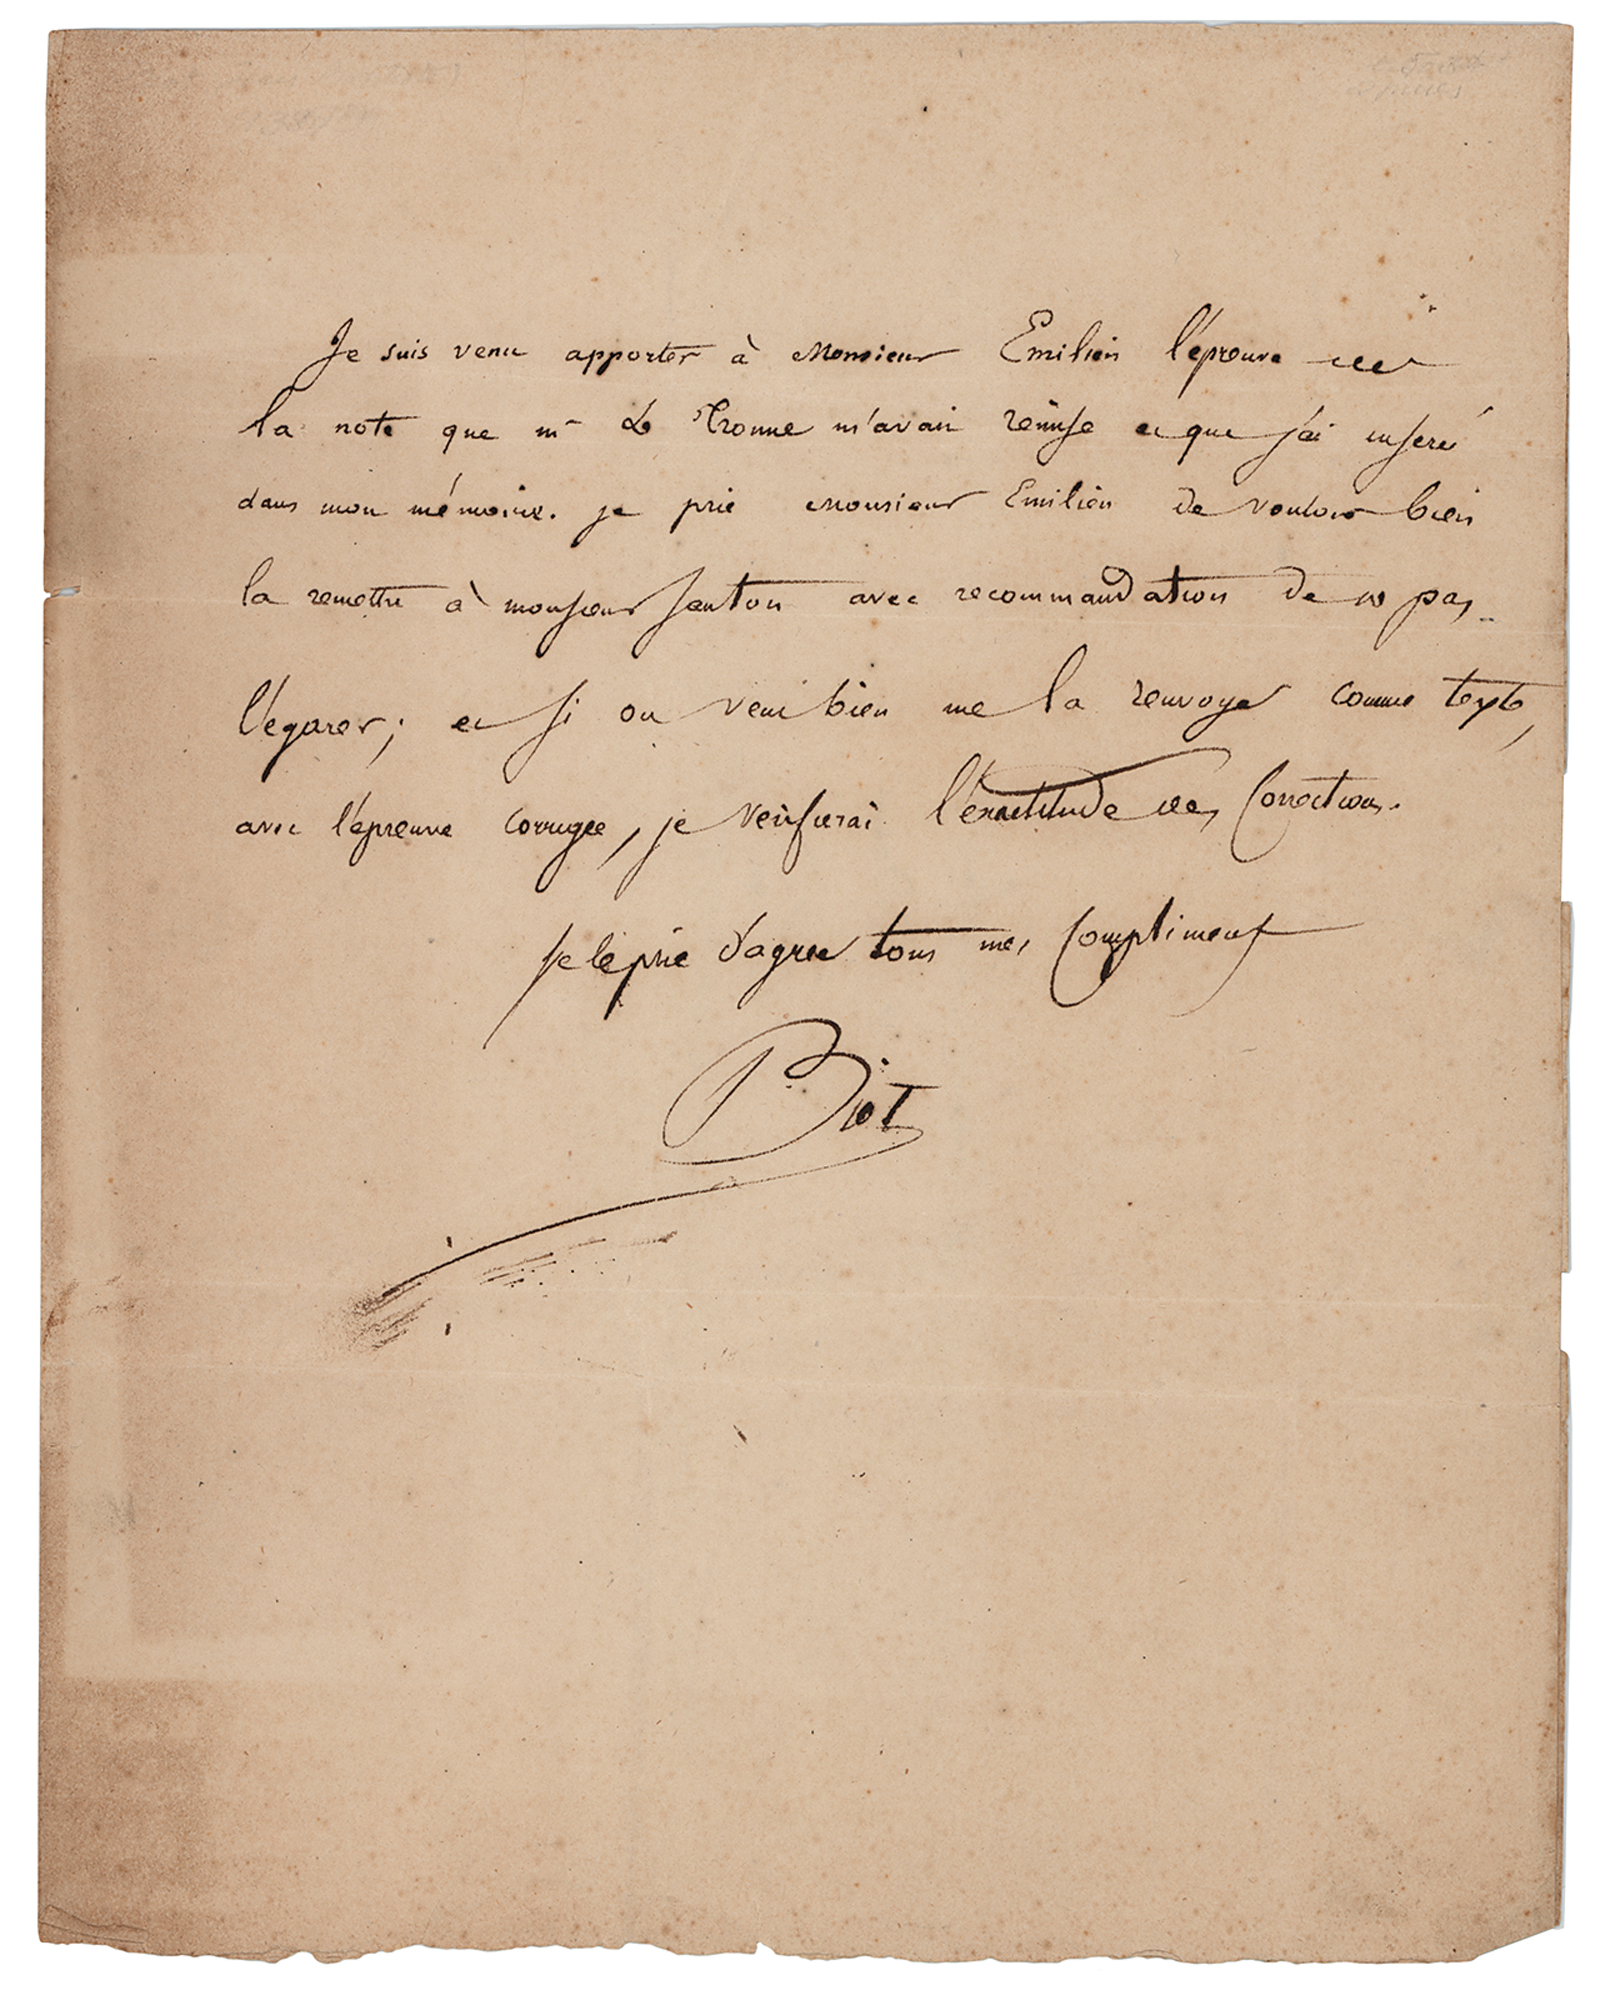 Je suis venu apporter à Monsieur Emilien l'épreuve de
la note que mr Le Tronne m'avait remise et que j'ai inseré
dans mon mémoire. je prie Monsieur Emilien de vouloir bien
la remettre à monsieur fanton avec recommandation de ne pas
l'égarer; et si on veut bien me la renvoyer comme texte,
avec l'épreuve corrigée, je verifierai l'exactitude des Corrections.
Je le prie d'agreer tous mes Compliments
Biot